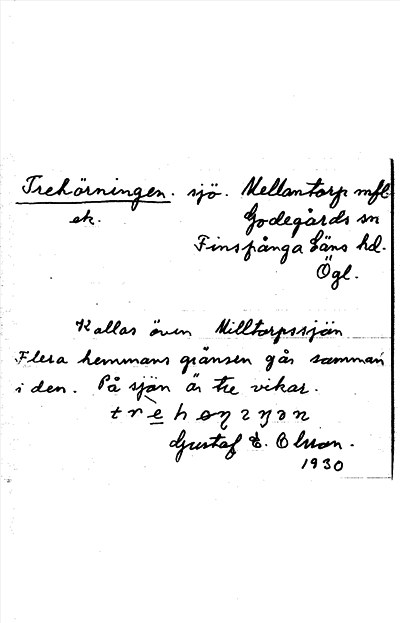 Trehörningen. sjö. Mellantorp mfl
ek. Godegårds sn
Finspånga Läns hd.
Ögl.
Kallas även Milltorpssjön
Flera hemmans gränsen går samman
i den. På sjön är tre vikar.
Gustaf E. Olsson.
1930